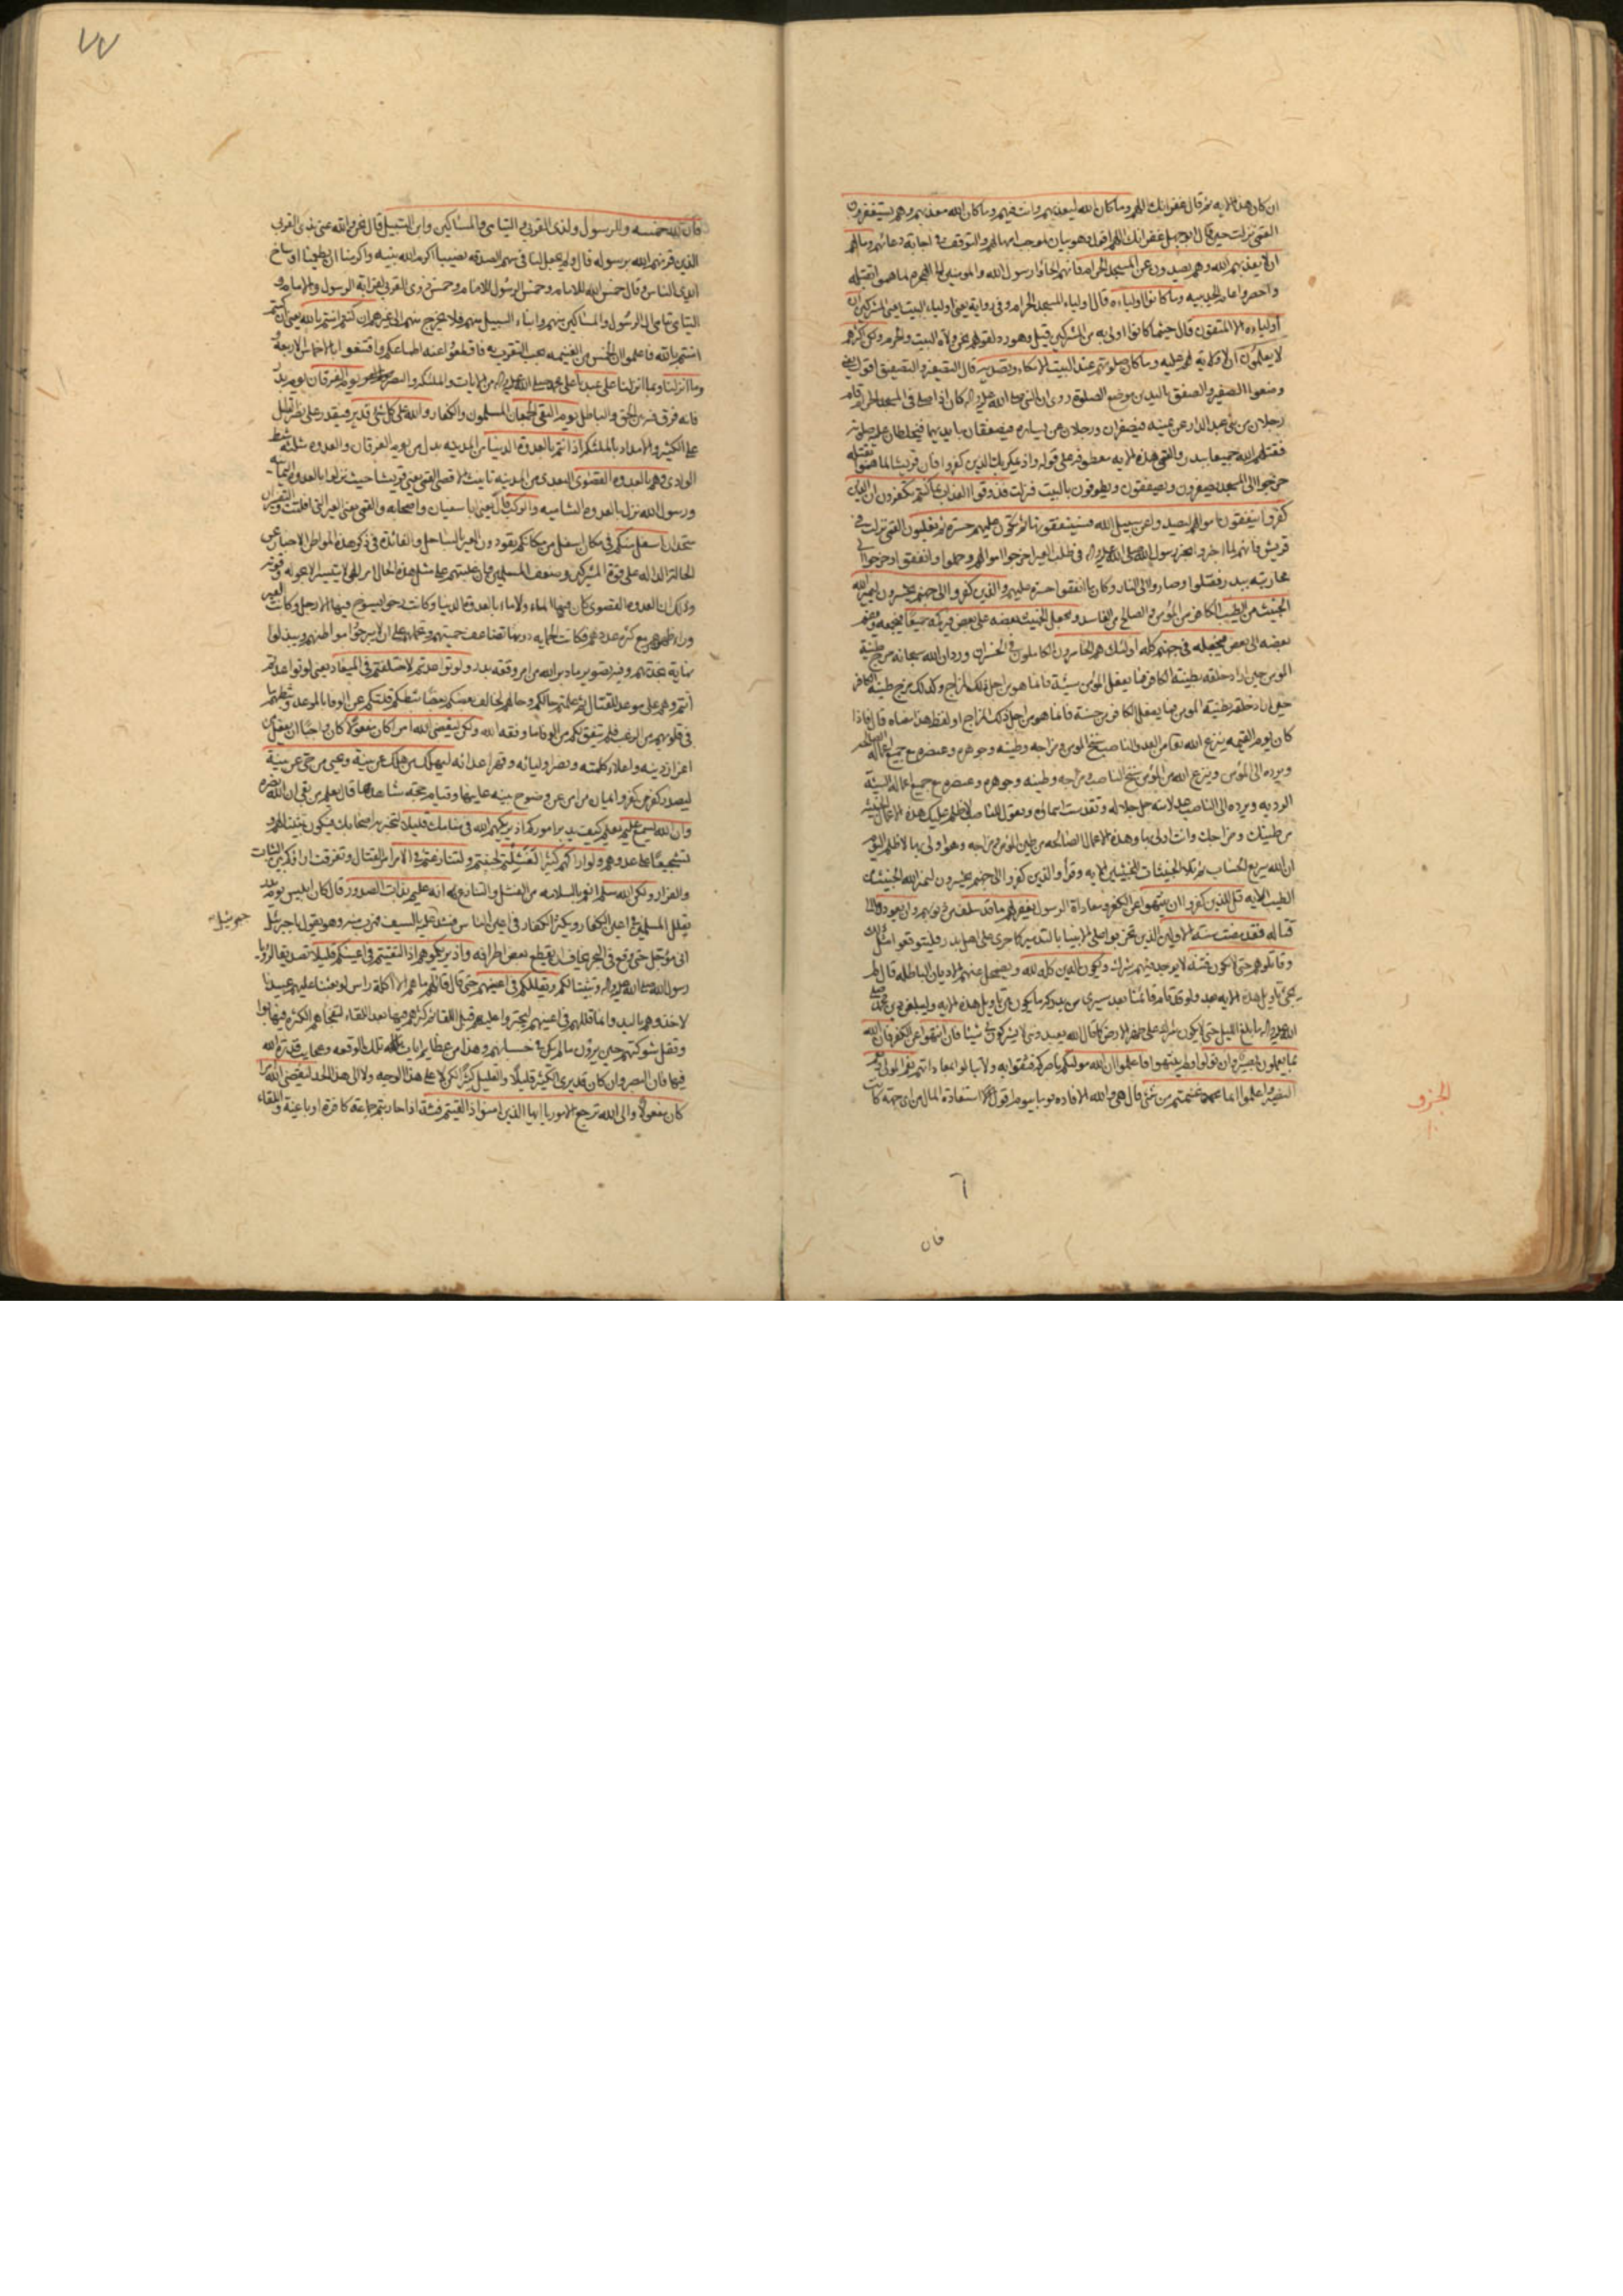 ان كان هذا الايه ثم قال غفرانك اللهم وما كان الله ليعذبهم وانت فيهم وما كان الله معذبهم وهم يستغفرون
القمي نزلت حين قال ابو جهل غفرانك اللهم اقول هو بيان لموجب امهالهم والتوقف في اجابة دعائهم وما لهم
ان لا يعذبهم الله وهم يصدون عن المسجد الحرام فانهم الجأوا رسول الله والمومنين الى الهجرة
واحصروا عام الحديبيه وما كانوا اولياءه قال اولياء المسجد الحرام وفي رواية يعني اولياء البيت يعني المشركين ان
أولياءه الا المتقون قال حيثما كانوا اولى به من المشركين قيل وهو رد لقولهم نحن ولاة البيت والحرم ولكن اكثرهم
لا يعلمون ان لا ولاية لهم عليه وما كان صلوتهم عند البيت الا مكاء وتصدية قال التصفير والتصفيق اقول يعني
وضعوا الصفير والصفق باليدين موضع الصلوة روى ان النبي صلى الله عليه واله كان اذا صلى في المسجد الحرام قام
رجلان من بني عبد الدار عن يمينه فيصفران ورجلان عن يساره فيصفقان بايديهما فيخلطان عليه صلوته
فقتلهم الله جميعا ببدر والقمي هذه الايه معطوفه على قوله واذ يمكر بك الذين كفروا فان قريشا لما هموا بقتله
خرجوا الى المسجد يصفرون ويصفقون ويطوفون بالبيت فنزلت فذوقوا العذاب بما كنتم تكفرون ان الذين
كفروا ينفقون اموالهم ليصدوا عن سبيل الله فسينفقونها ثم تكون عليهم حسرة ثم يغلبون القمي نزلت في
قريش فانهم لما اخبروا بخبر رسول الله صلى الله عليه واله في طلب العير اخرجوا اموالهم وحملوا وانفقوا وخرجوا الى
محاربته ببدر فقتلوا وصاروا الى النار وكان ما انفقوا حسرة عليهم والذين كفروا الى جهنم يحشرون ليميز الله
الخبيث من الطيب الكافر من المومن والصالح من الفاسد ويجعل الخبيث بعضه على بعض فيركمه جميعا فيجمعه ويضم
بعضه الى بعض فيجعله في جهنم كله أولئك هم الخاسرون الكاملون في الخسران ورد ان الله سبحانه مزج طينة
المومن حين اراد خلقه بطينة الكافر فما يفعل المومن سيئة فانما هو من اجل ذلك المزاج وكذلك مزج طينة الكافر
حين اراد خلقه بطينة المومن فما يفعل الكافر من حسنة فانما هو من اجل ذلك المزاج او لفظ هذا معناه قال فاذا
كان يوم القيمه ينزع الله من العدو الناصب سنخ المومن ومزاجه وطينته وجوهره وعنصره مع جميع اعماله الصالحه
ويرده الى المومن وينزع الله من المومن سنخ الناصب ومزاجه وطينته وجوهره وعنصره مع جميع اعماله السيئة
الرديه ويرده الى الناصب عدلا منه جل جلاله وتقدست اسماؤه ويقول للناصب لا ظلم عليك هذه الاعمال الخبيثه
من طينتك ومزاجك وانت اولى بها وهذه الاعمال الصالحه من طين المومن ومزاجه وهو اولى بها لا ظلم اليوم
ان الله سريع الحساب ثم تلا الخبيثات للخبيثين الايه وقرأ والذين كفروا الى جهنم يحشرون ليميز الله الخبيث من
الطيب الايه قل للذين كفروا ان ينتهوا عن الكفر ومعاداة الرسول يغفر لهم ما قد سلف من ذنوبهم وان يعودوا الى
قتاله فقد مضت سنة الاولين الذين تحزبوا على الانبياء بالتدمير كما جرى على اهل بدر فليتوقعوا مثل ذلك
وقاتلوهم حتى لا تكون فتنة لا يوجد فيهم شرك ويكون الدين كله لله ويضمحل عنهم الاديان الباطله قال لم
يجئ تاويل هذه الايه بعد ولو قد قام قائمنا بعد سيرى من يدركه ما يكون من تاويل هذه الايه وليبلغن دين محمد صلى
الله عليه واله ما بلغ الليل حتى لا يكون شرك على ظهر الارض كما قال الله يعبدونني لا يشركون بي شيئا فان انتهوا عن الكفر فان الله
بما يعملون بصير وان تولوا ولم ينتهوا فاعلموا ان الله موليكم ناصركم فثقوا به ولا تبالوا بمعاداتهم نعم المولى ونعم
النصير واعلموا انما غنمتم من شئ قال هي والله الافاده يوما بيوم اقول يعني استفادة المال من اى جهة كانت
الجزو
١٠
فان
٧٧
فان لله خمسه وللرسول ولذى القربى واليتامى والمساكين وابن السبيل قال نحن والله عنى بذى القربى
الذين قرنهم الله برسوله قال ولم يجعل لنا في سهم الصدقه نصيبا اكرم الله نبيه واكرمنا ان يطعمنا اوساخ
ايدى الناس وقال خمس الله للامام وخمس الرسول للامام وخمس ذوى القربى لقرابة الرسول والامام و
اليتامى يتامى آل الرسول والمساكين منهم وابناء السبيل منهم فلا يخرج منهم الى غيرهم ان كنتم امنتم بالله يعني ان كنتم
امنتم بالله فاعلموا ان الخمس من الغنيمه يجب التقرب به فاقطعوا عنه اطماعكم واقتنعوا بالاخماس الاربعه
وما انزلنا وبما انزلنا على عبدنا على محمد صلى الله عليه واله من الايات والملئكه والنصر يوم الفرقان يوم بدر
فانه فرق فيه بين الحق والباطل يوم التقى الجمعان المسلمون والكفار والله على كل شئ قدير فيقدر على نصر القليل
على الكثير والامداد بالملئكه اذ انتم بالعدوة الدنيا من المدينه بدل من يوم الفرقان والعدوه مثلثه شط
الوادى وهم بالعدوه القصوى البعدى من المدينه تانيث الاقصى القمي يعني قريشا حيث نزلوا بالعدوه اليمانيه
ورسول الله نزل بالعدوه الشاميه والركب قال يعني ابا سفيان واصحابه والقمي يعني العير التي افلتت
اسفل منكم في مكان اسفل من مكانكم يقودون العير بالساحل والفائدة في ذكر هذه المواطن الاخبار عن
الحالة الداله على قوة المشركين وضعف المسلمين وان غلبتهم على مثل هذه الحال امر الهى لا يتيسر الا بحوله وقوته
وذلك ان العدوه القصوى كان فيها الماء ولا ماء بالعدوة الدنيا وكانت رخوا يسوخ فيها الارجل وكانت العير
وراء ظهورهم مع كثره عددهم فكانت الحمايه دونها تضاعف حميتهم وتحملهم على ان لا يبرحوا مواطنهم ويبذلوا
نهاية نجدتهم وفيه تصوير ما دبر الله من امر وقعه بدر ولو تواعدتم لاختلفتم في الميعاد يعني لو تواعدتم
أنتم وهم على موعد للقتال ثم علمتم حالكم وحالهم لخالف بعضكم بعضا ثبطكم قلتكم عن الوفا بالموعد وثبطهم ما
في قلوبهم من الرعب فلم يتفق لكم من الوفا ما وفقه الله ولكن ليقضى الله امرا كان مفعولا كان واجبا ان يفعل من
اعزاز دينه واعلاء كلمته ونصر اوليائه وقهر اعدائه ليهلك من هلك عن بينة ويحيى من حى عن بينة
ليصدر كفر من كفر وايمان من امن عن وضوح بينه عاينها وقيام حجه شاهدها قال يعلم من بقى ان الله نصره
وان الله لسميع عليم يعلم كيف يدبر اموركم اذ يريكهم الله في منامك قليلا لتخبر به اصحابك فيكون تثبيتا لهم و
تشجيعا على عدوهم ولو اراكهم كثيرا لفشلتم لجبنتم ولتنازعتم في الامر امر القتال وتفرقت اراؤكم بين الثبات
والفرار ولكن الله سلم انعم بالسلامه من الفشل والتنازع انه عليم بذات الصدور قال كان ابليس يوم بدر
يقلل المسلمين في اعين الكفار ويكثر الكفار في اعين الناس فشد عليه بالسيف فهرب منه وهو يقول يا جبرئيل
جبرئيل
انى مؤجل حتى وقع في البحر يخاف ان يقطع بعض اطرافه واذ يريكموهم اذ التقيتم في اعينكم قليلا تصديقا لرؤيا
رسول الله صلى الله عليه واله وتثبيتا لكم ويقللكم في اعينهم حتى قال قائلهم ما هم الا اكلة راس لو بعثنا عليهم عبيدنا
لاخذوهم باليد وانما قللهم في اعينهم ليجترؤا عليهم قبل اللقاء ثم كثرهم فيها بعد اللقاء لتفجأهم الكثره فيهابوا
وتفل شوكتهم حين يرون ما لم يكن في حسابهم وهذا من عظايم ايات تلك الوقعه وعجايب قدرة الله
فيها فان البصر وان كان قد يرى الكثير قليلا والقليل كثيرا لكن لا على هذا الوجه ولا الى هذا الحد ليقضى الله امرا
كان مفعولا والى الله ترجع الامور يا ايها الذين امنوا اذا لقيتم فئة اذا حاربتم جماعة كافرة او باغية واللقاء